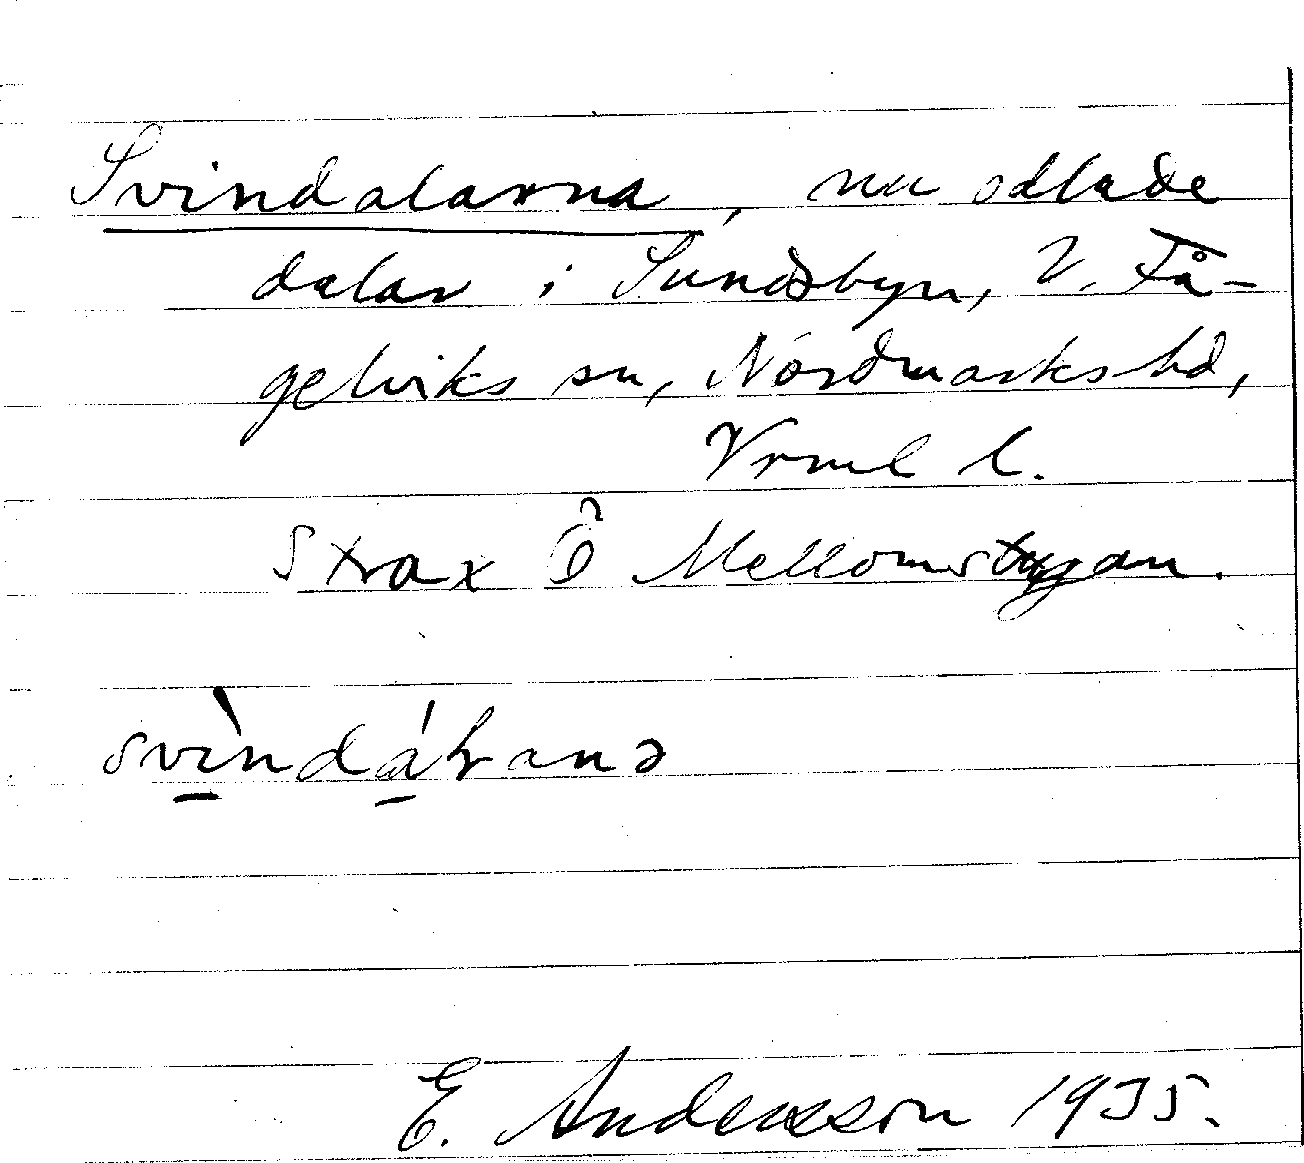 Svindalarna, nu odlade
dalar i Sundsbyn, V. Få-
gelviks sn, Nordmarks hd,
Vrml l.
Strax Ö Mellomstygan.
svìndáɽanə
E. Andersson 1935.